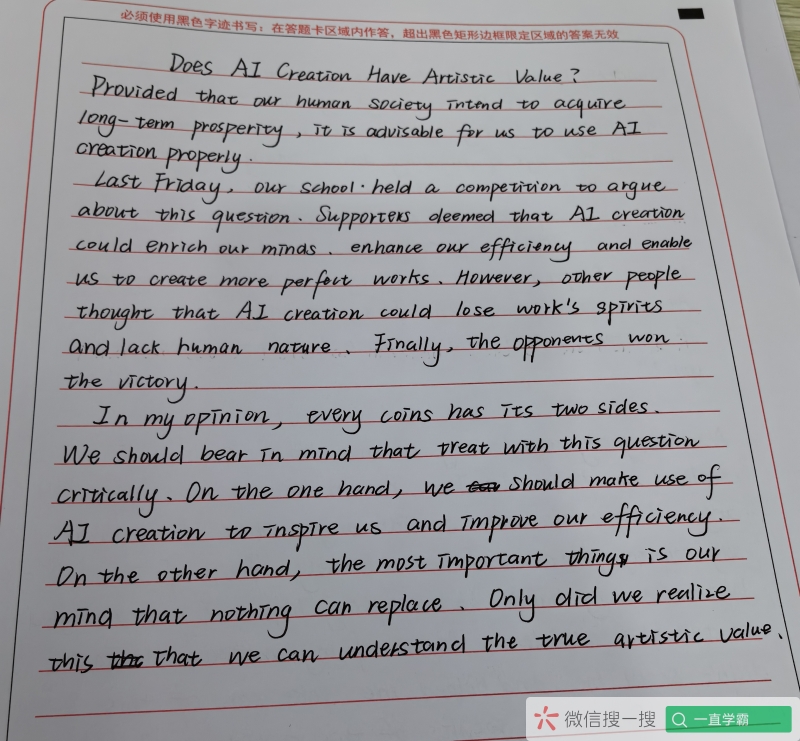 必须使用黑色字迹书写：在答题卡区域内作答，超出黑色矩形边框限定区域的答案无效
Does AI Creation Have Artistic Value?
Provided that our human society intend to acquire
long-term prosperity, it is advisable for us to use AI
creation properly.
Last Friday, our school held a competition to argue
about this question. Supporters deemed that AI creation
could enrich our minds, enhance our efficiency and enable
us to create more perfect works. However, other people
thought that AI creation could lose work's spirits
and lack human nature. Finally, the opponents won
the victory.
In my opinion, every coins has its two sides.
We should bear in mind that treat with this question
critically. On the one hand, we should make use of
AI creation to inspire us and improve our efficiency.
On the other hand, the most important things is our
mind that nothing can replace. Only did we realize
this that we can understand the true artistic value.
微信搜一搜
一直学霸